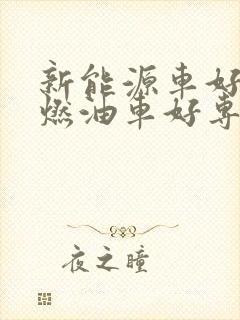 新能源車好
燃油車好專
夜之瞳